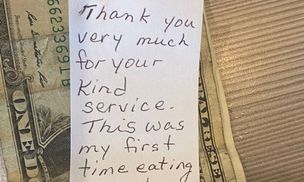 Thank you
very much
for your
kind
service.
This was
my first
time eating
ONE D
66233691B